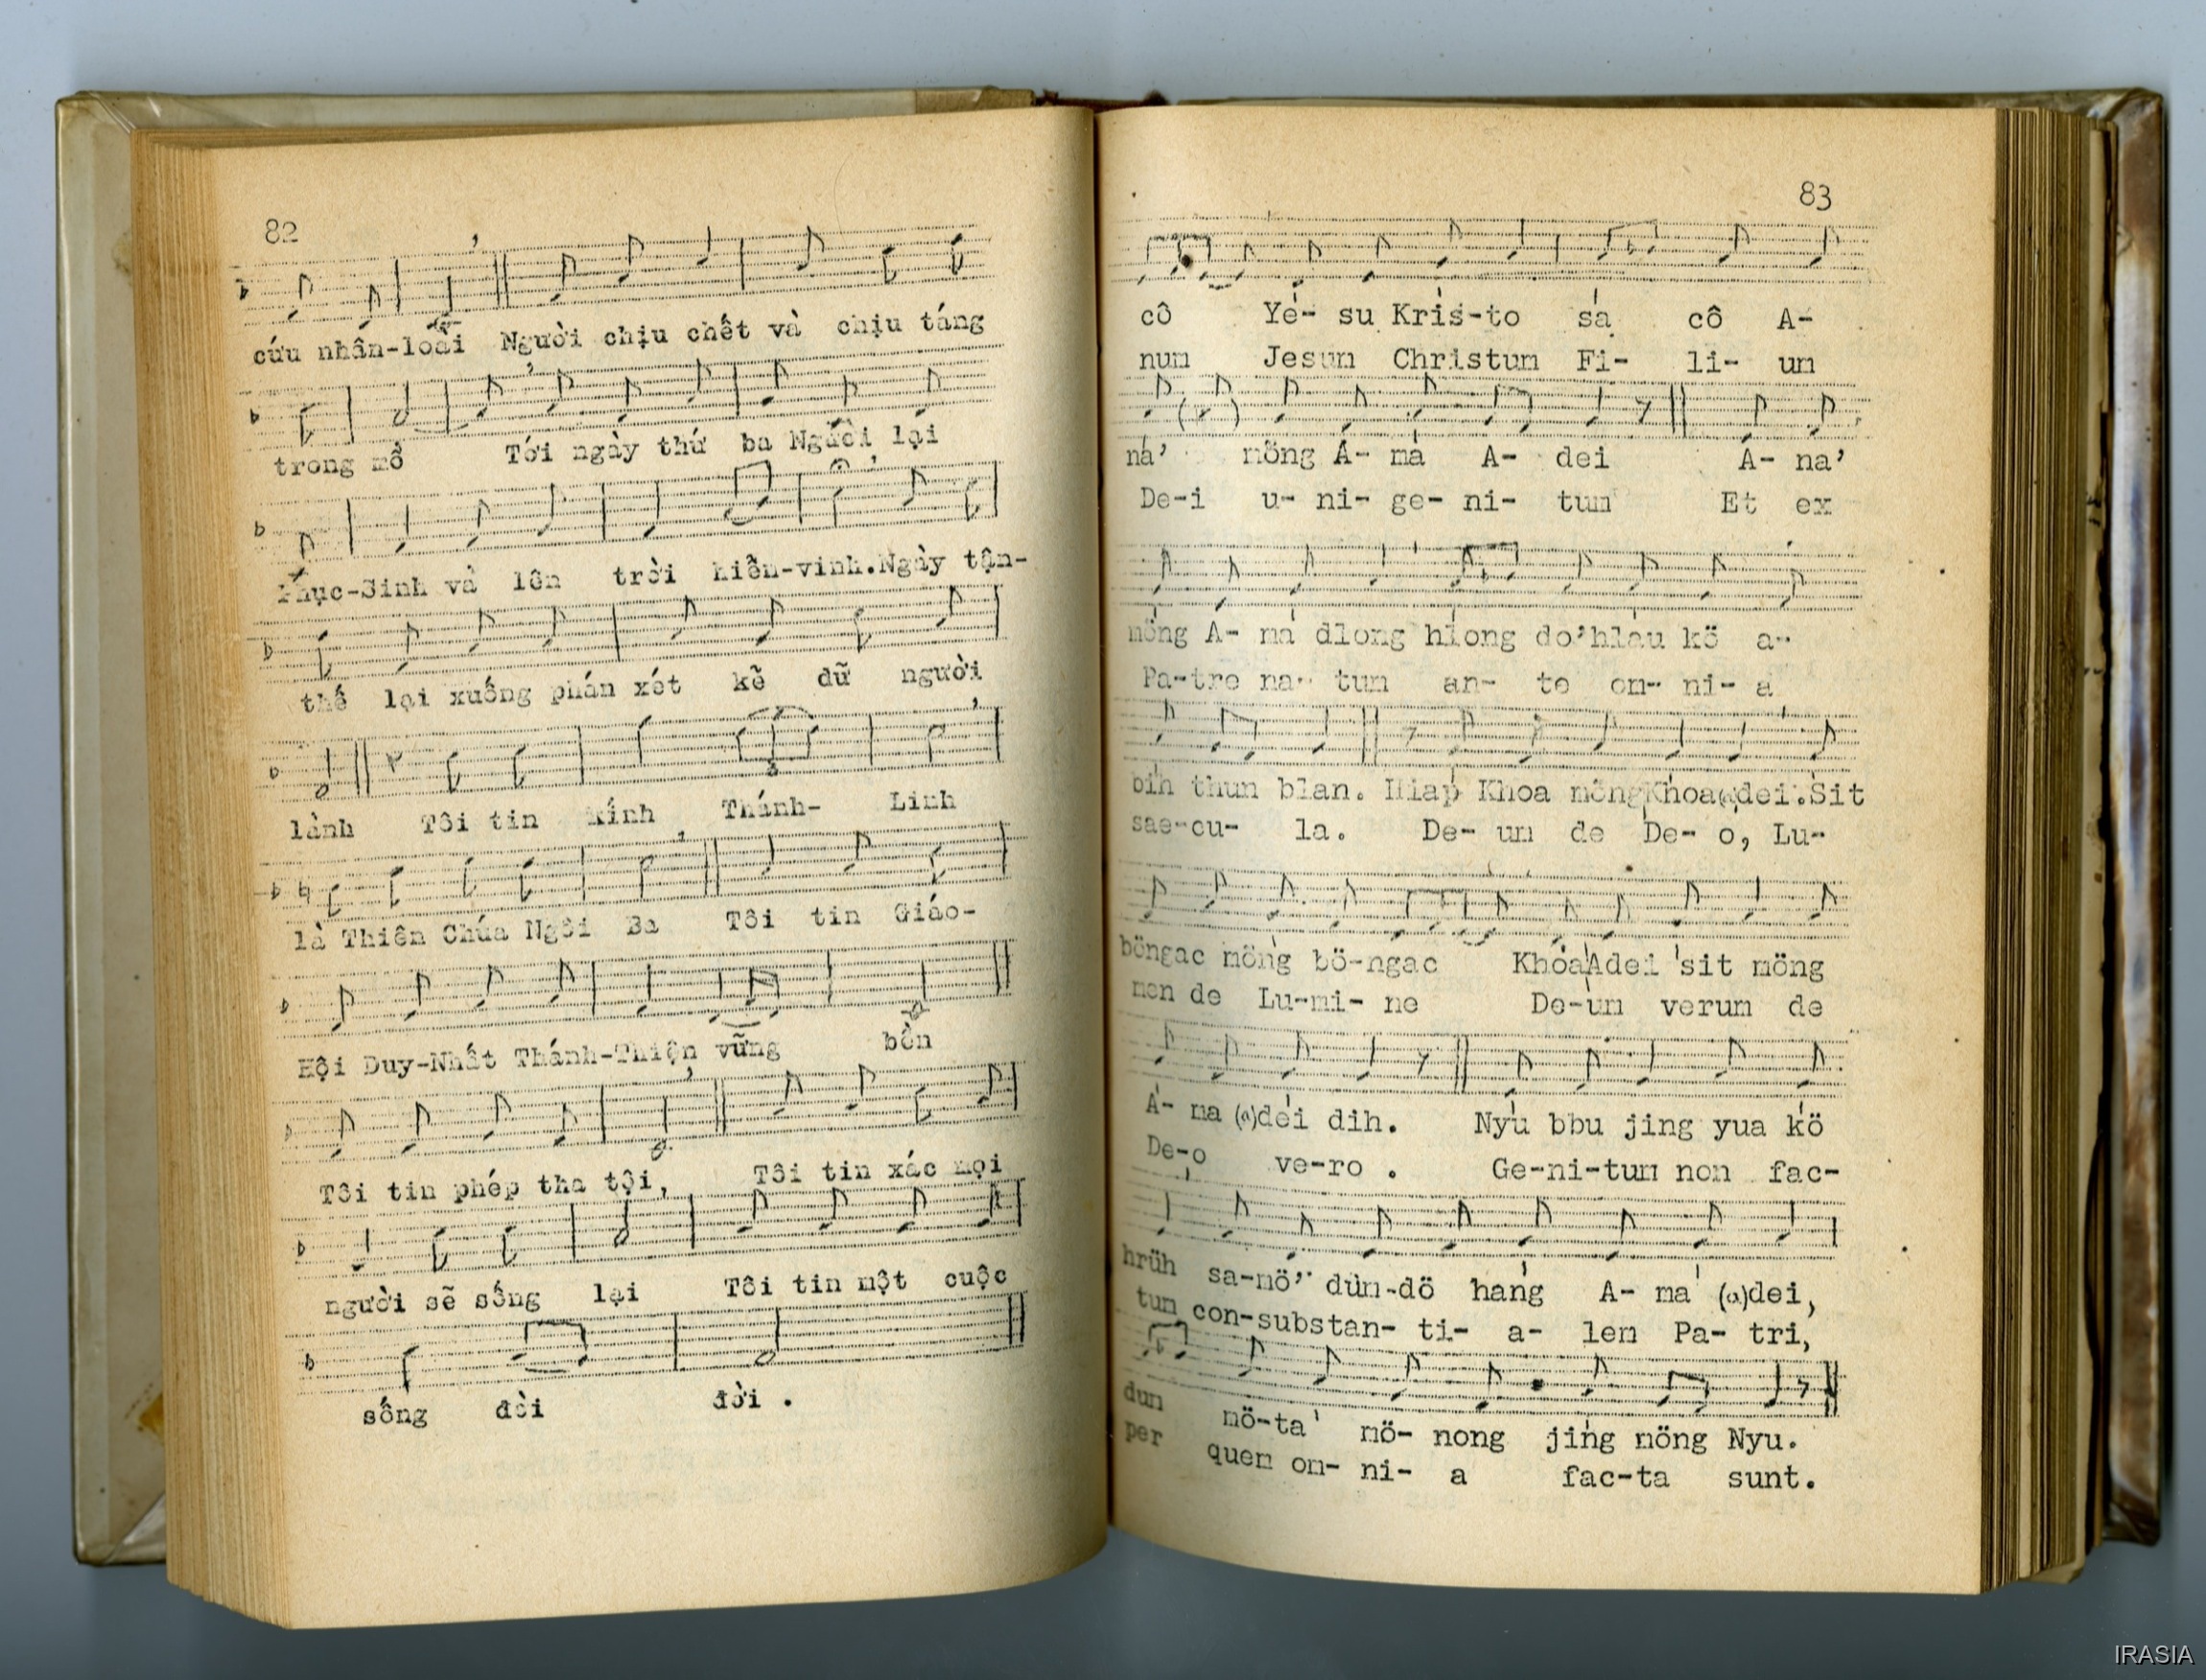 82
cứu nhân-loài Người chịu chết và chịu táng
trong mồ Tới ngày thứ ba Người lại
Phục-Sinh và lên trời hiển-vinh. Ngày tận-
thế lại xuống phán xét kẽ dữ người
lành Tôi tin kính Thánh- Linh
là Thiên Chúa Ngôi Ba Tôi tin Giáo-
Hội Duy-Nhất Thánh-Thiện vững bền
Tôi tin phép tha tội, Tôi tin xác mọi
người sẽ sống lại Tôi tin một cuộc
sống đời đời .
83
cô Yê- su Kris-to sa cô A-
num Jesum Christum Fi- li- um
na’ mông A- ma A- dei A- na’
De-i u- ni- ge- ni- tum Et ex
mông A- ma dlong hlong do’hlau kö a-
Pa-tre na- tum an- te om- ni- a
bih thun blan. Hlap Khoa möng Khoa(a)dei. Sit
sae-cu- la. De- um de De- o, Lu-
böngac möng bö-ngac Khoa Adei sit möng
men de Lu-mi- ne De-um verum de
A- ma (a)dei dih. Nyu bbu jing yua kö
De-o ve-ro . Ge-ni-tum non fac-
hrüh sa-nö’ dun-dö hang A- ma (a)dei,
tum con-substan- ti- a- lem Pa- tri,
dun nö-ta mö- nong jing möng Nyu.
per quem om- ni- a fac-ta sunt.
IRASIA